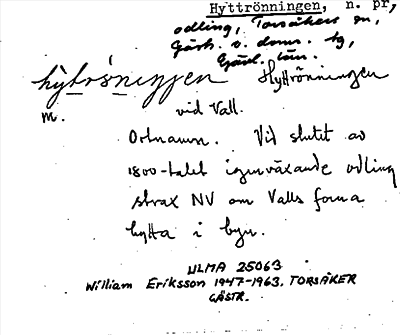 Hyttrönningen, n. pr,
odling, Torsåkers sn,
Gästr. v. doms. tg,
Gävl. län.
hỳtrǿniŋŋen Hyttrönningen
m. vid Vall.
Ortnamn. Vid slutet av
1800-talet igenväxande odling
strax NV om Valls forna
hytta i byn.
ULMA 25063
William Eriksson 1947-1963. TORSÅKER
GÄSTR.